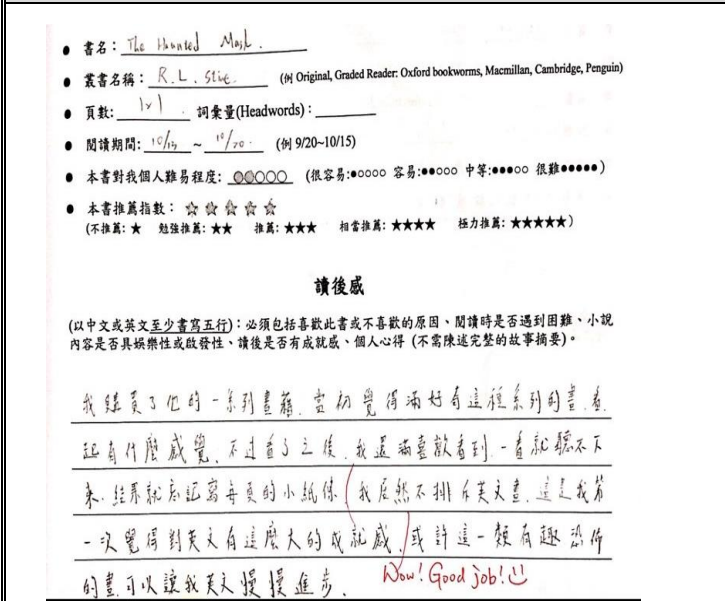 ● 書名: The Haunted Mask.
● 叢書名稱: R.L. Stine. (例 Original, Graded Reader: Oxford bookworms, Macmillan, Cambridge, Penguin)
● 頁數: 詞彙量(Headwords):
● 閱讀期間: ~ 10/20. (例 9/20~10/15)
● 本書對我個人難易程度: ●●○○○ (很容易:●○○○○ 容易:●●○○○ 中等:●●●○○ 很難●●●●●)
● 本書推薦指數: ☆☆☆☆☆
(不推薦: ★ 勉強推薦: ★★ 推薦: ★★★ 相當推薦: ★★★★ 極力推薦: ★★★★★)
讀後感
(以中文或英文至少書寫五行): 必須包括喜歡此書或不喜歡的原因、閱讀時是否遇到困難、小說
內容是否具娛樂性或啟發性、讀後是否有成就感、個人心得 (不需陳述完整的故事摘要)。
我購買了他的一系列書籍, 當初覺得滿好奇這種系列的書, 看
起有什麼感覺, 不过看了之後, 我還滿喜歡看到, 一看就聽不下
來, 結果就忘記寫每頁的小紙條 (我居然不排斥英文書, 這是我第
一次覺得對英文有這麼大的成就感, 或許這一類有趣恐怖
的書可以讓我英文慢慢進步.
Wow! Good job!